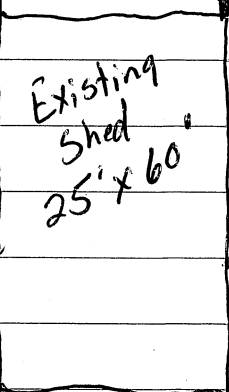 Existing
Shed
25' x 60'